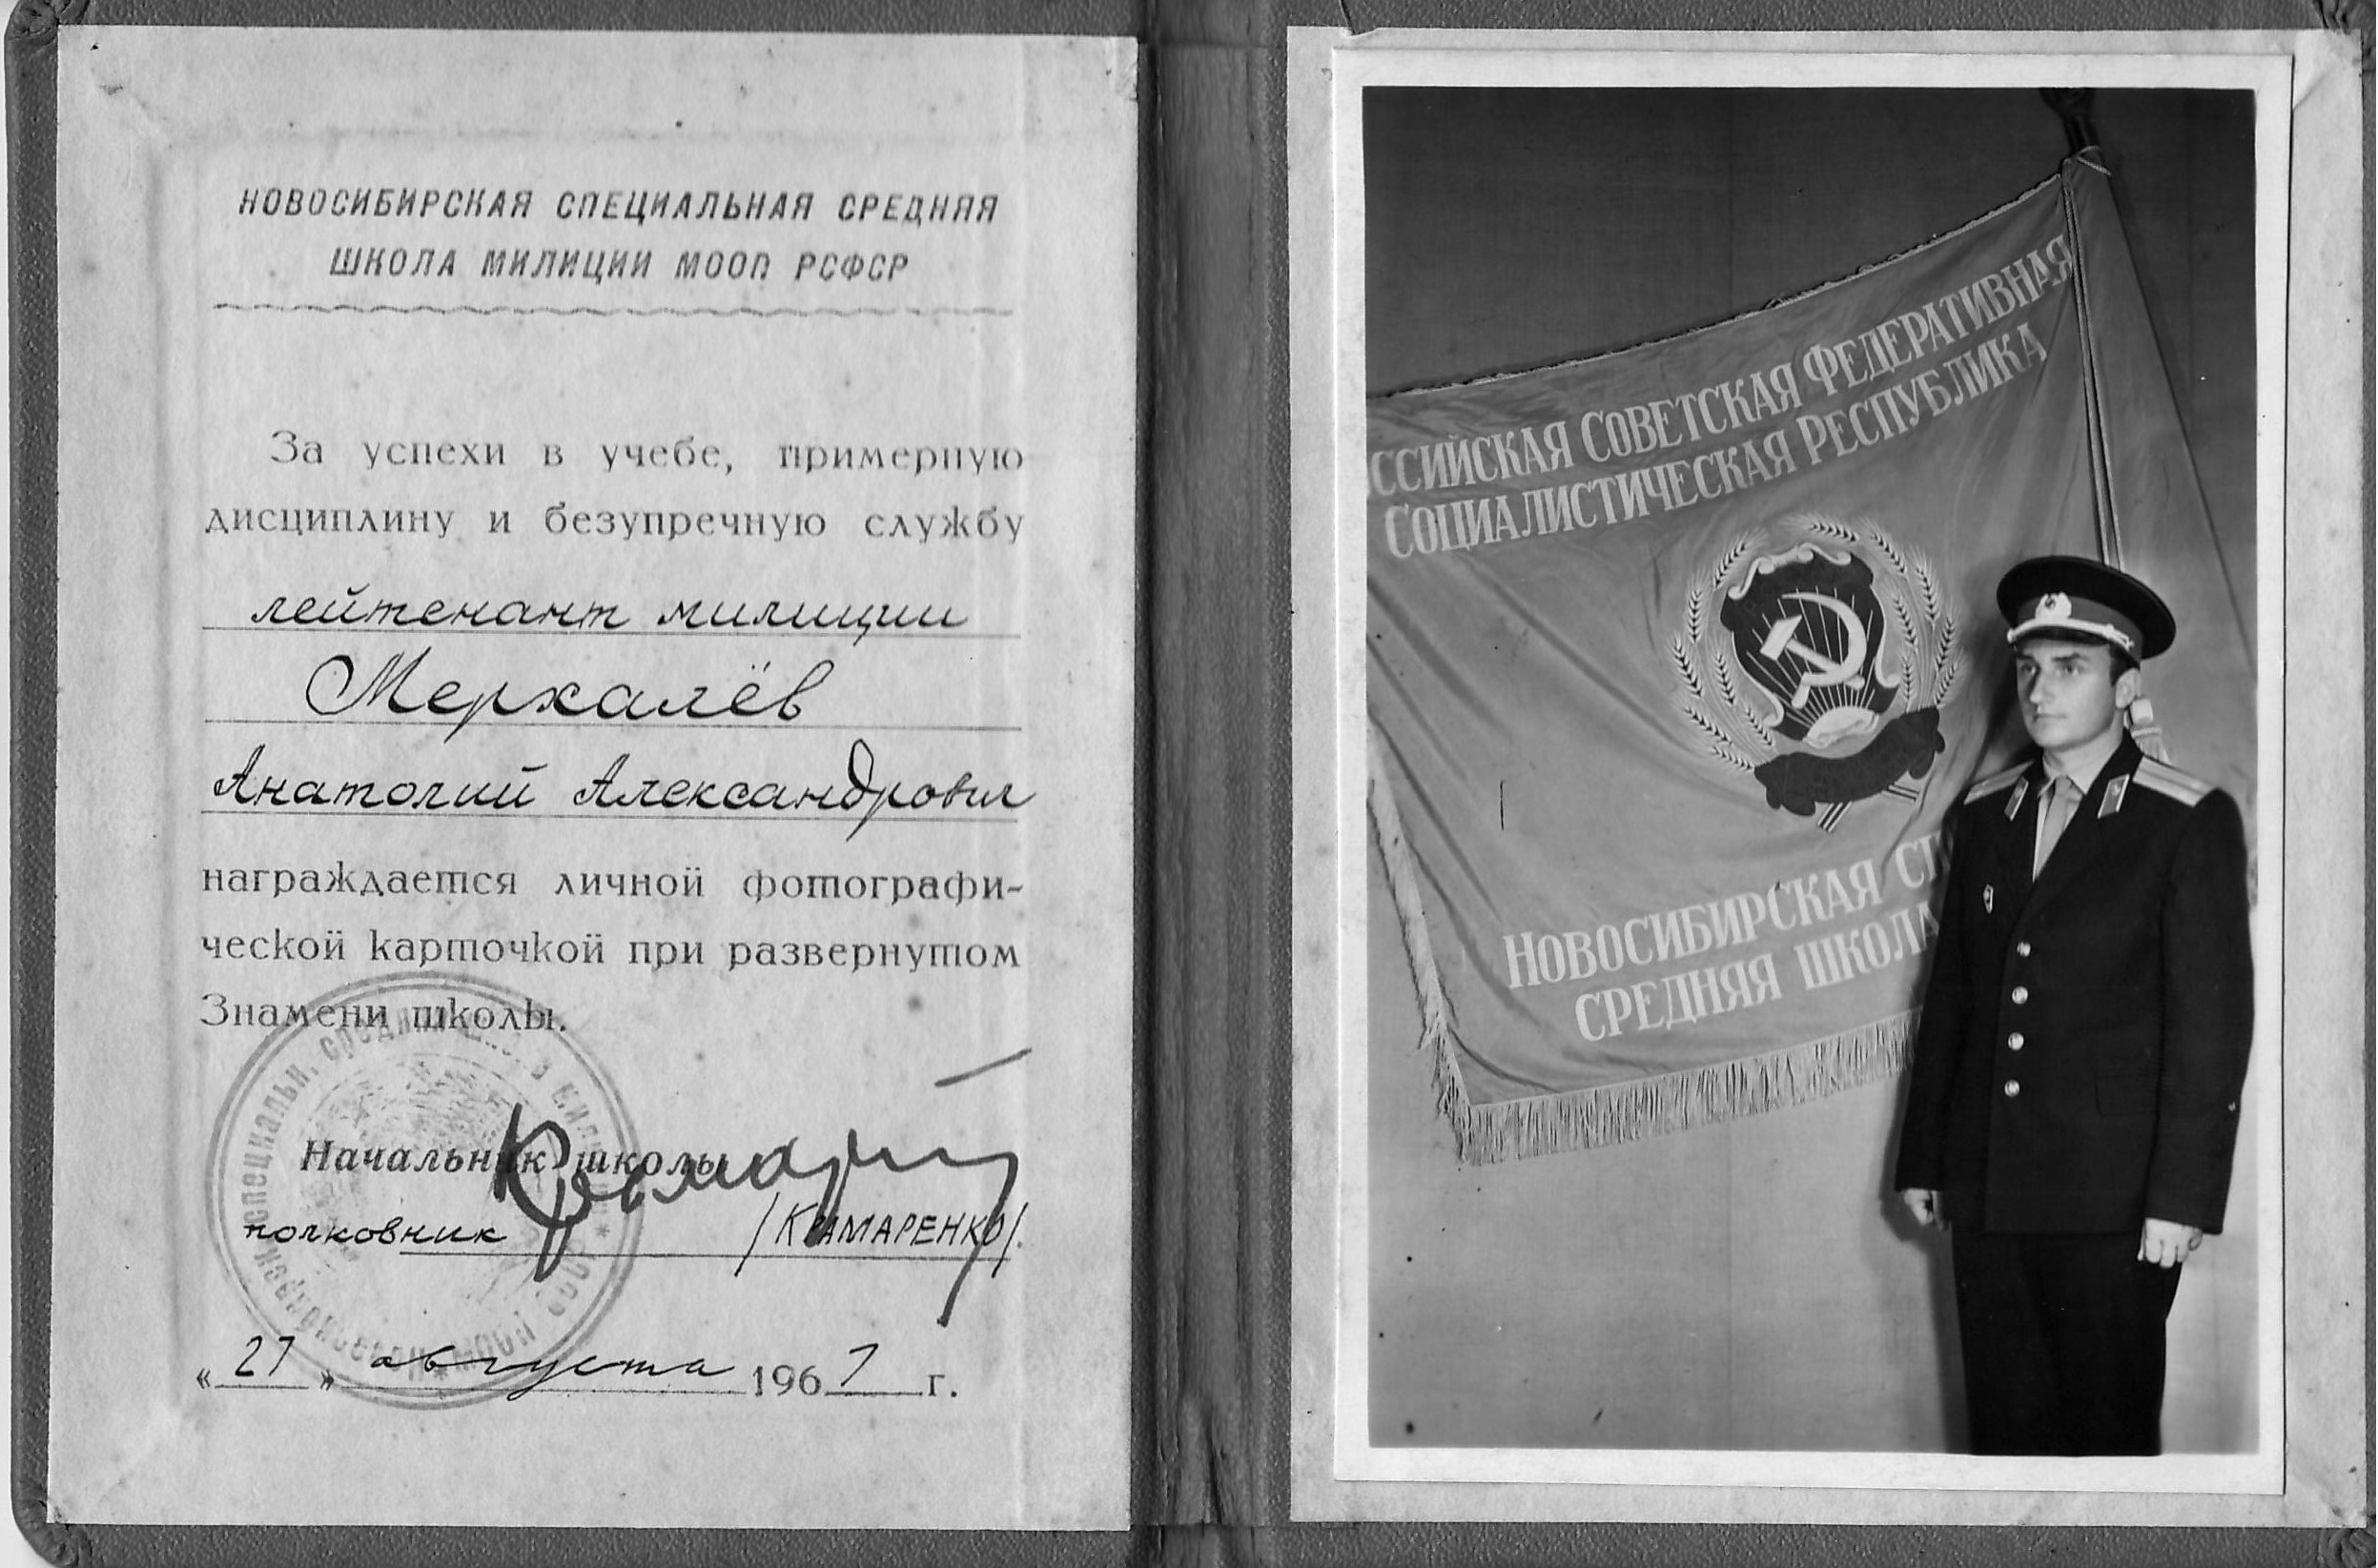 НОВОСИБИРСКАЯ СПЕЦИАЛЬНАЯ СРЕДНЯЯ
ШКОЛА МИЛИЦИИ МООП РСФСР
За успехи в учебе, примерную
дисциплину и безупречную службу
лейтенант милиции
Меркалёв
Анатолий Александрович
награждается личной фотографи-
ческой карточкой при развернутом
Знамени школы.
Начальник школы
полковник /КРАМАРЕНКО/.
« 27 » августа 1967 г.
ССИЙСКАЯ СОВЕТСКАЯ ФЕДЕРАТИВНАЯ
СОЦИАЛИСТИЧЕСКАЯ РЕСПУБЛИКА
НОВОСИБИРСКАЯ СП
СРЕДНЯЯ ШКОЛА